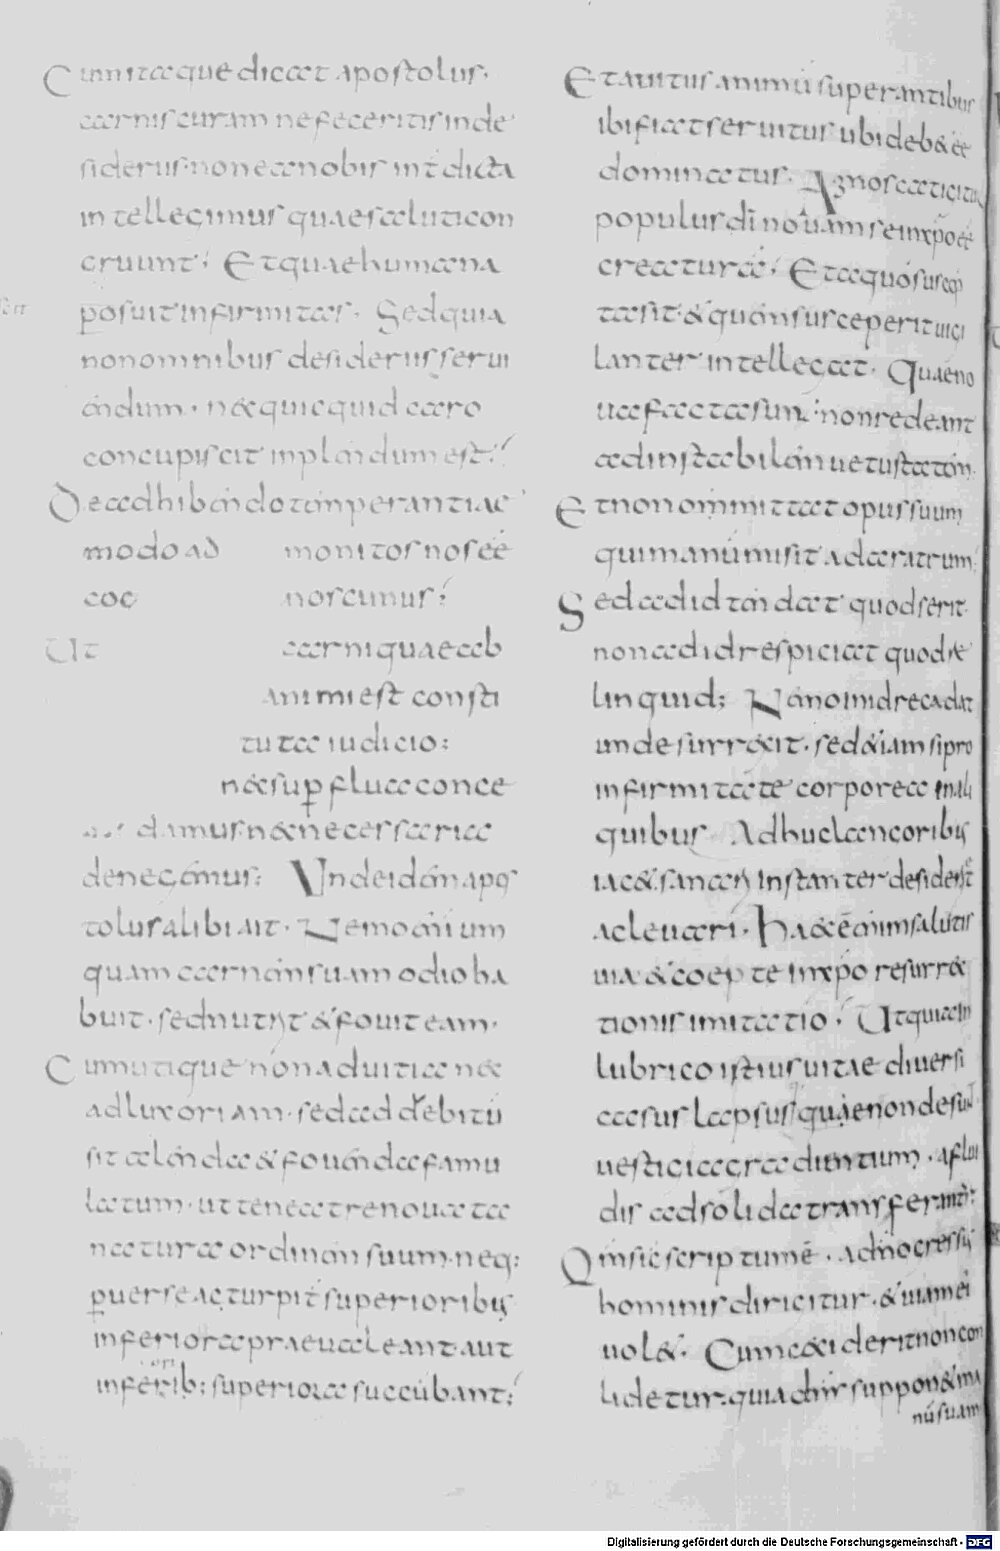 Cum itaque dicat apostolus.
carnis curam ne feceritis inde
siderus. non ea nobis int̄dicta
intellegimus quae saluti con
gruunt; Et quae humana
ꝑosuit infirmitas. Sed quia
non omnibus desideriis serui
endum. nec quicquid caro
concupiscit implendum est;
De adhibendo temperantiae
modo ad monitos nos eē
cog noscimus;
Ut carni quae sub
animi est consti
tuta iudicio:
nec suꝑflua conce
damus. nec necessaria
denegemus; Unde idem apos
tolus alibi ait. Nemo enim um
quam carnem suam odio ha
buit. sed nutrit & fouit eam.
Cum utique non ad uitia nec
ad luxoriam. sed ad debitū
sit alenda & fouenda famu
latum. ut teneat renouata
natura ordinem suum. neq:
ꝑuerse ac turpit̄ superioribus
inferiora praeualeant. aut
inferiorib: superiora succūbant;
Et a uitiis animū superantibus
ibi fiat seruitus ubi debet eē
dominatus. Agnoscat igitur
populus dī nouam se in xp̄o eē
creaturā; Et a quo suscep
ta sit. & quem susceperit uigi
lanter intellegat. Quae no
ua facta sunt. non redeant
ad instabilem uetustatem.
Et non omittat opus suum
qui manū misit ad aratrum;
Sed ad id tendat quod serit.
non ad id respiciat quod re
linquid; Nemo in id recadat
unde surrexit. sed etiam si pro
infirmitate corporea in ali
quibus adhuc lancoribus
iacet. sanari instanter desideret
ac leuari. Haec ē enim salutis
uia & coeptae in xp̄o resurrec
tionis imitatio; Ut quia in
lubrico istius uitae diuersi
casus lapsusq quae non desunt
uestigia gradientum. a flui
dis ad solida transferantur.
Qm̄ sic scriptum ē. a dn̄o gressus
hominis dirigitur. & uiam ei
uolet. Cum ceciderit non con
lidetur. quia dn̄s supponet ma
nū suam